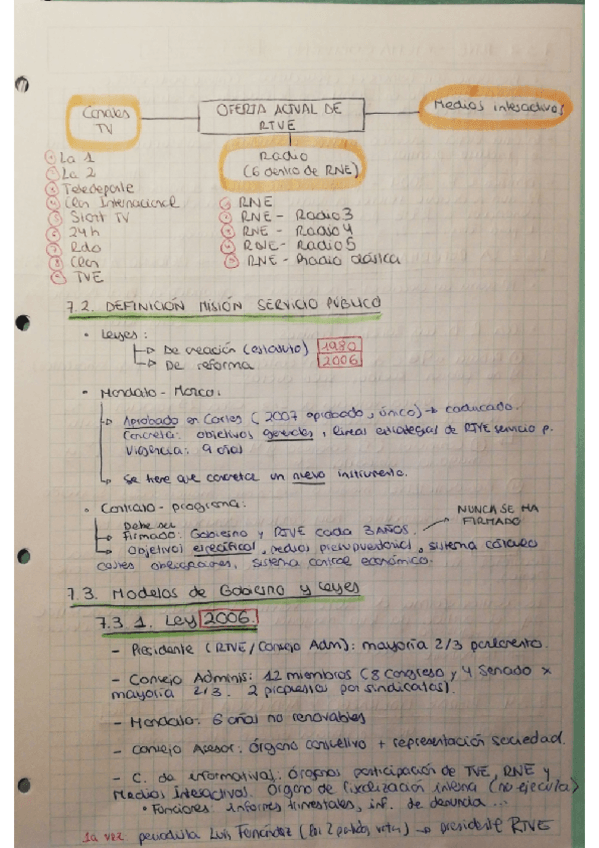 Canales TV
OFERTA ACTUAL DE RTVE
Medios interactivos
Radio
(6 dentro de RNE)
1 La 1
2 La 2
3 Teledeporte
4 Clan Internacional
5 Start TV
6 24 h
7 Rdo
8 Clan
9 TVE
1 RNE
2 RNE - Radio 3
3 RNE - Radio 4
4 RNE - Radio 5
5 RNE - Radio clásica
7.2. DEFINICIÓN MISIÓN SERVICIO PÚBLICO
• Leyes:
De creación (estatuto) 1980
De reforma 2006
• Mandato - Marco:
Aprobado en Cortes (2007 aprobado, único) → caducado.
Concreta: objetivos generales, líneas estratégicas de RTVE servicio p.
Vigencia: 9 años
Se tiene que concretar un nuevo instrumento.
• Contrato - programa:
NUNCA SE HA
FIRMADO
Debe ser
Firmado: Gobierno y RTVE cada 3 AÑOS.
Objetivos específicos, medios presupuestarios, sistema cálculo
costes obligaciones, sistema control económico.
7.3. Modelos de Gobierno y Leyes
7.3.1. Ley 2006.
- Presidente (RTVE/Consejo Adm): mayoría 2/3 parlamento.
- Consejo Adminis: 12 miembros (8 congreso y 4 Senado x
mayoría 2/3. 2 propuestos por sindicatos).
- Mandato: 6 años no renovables
- Consejo Asesor: órgano consultivo + representación sociedad.
- C. de informativos: órganos participación de TVE, RNE y
Medios Interactivos. Órgano de fiscalización interna (no ejecuta)
• Funciones: informes trimestrales, inf. de denuncia ...
1a vez periodista Luis Fernández (los 2 partidos votan) → presidente RTVE